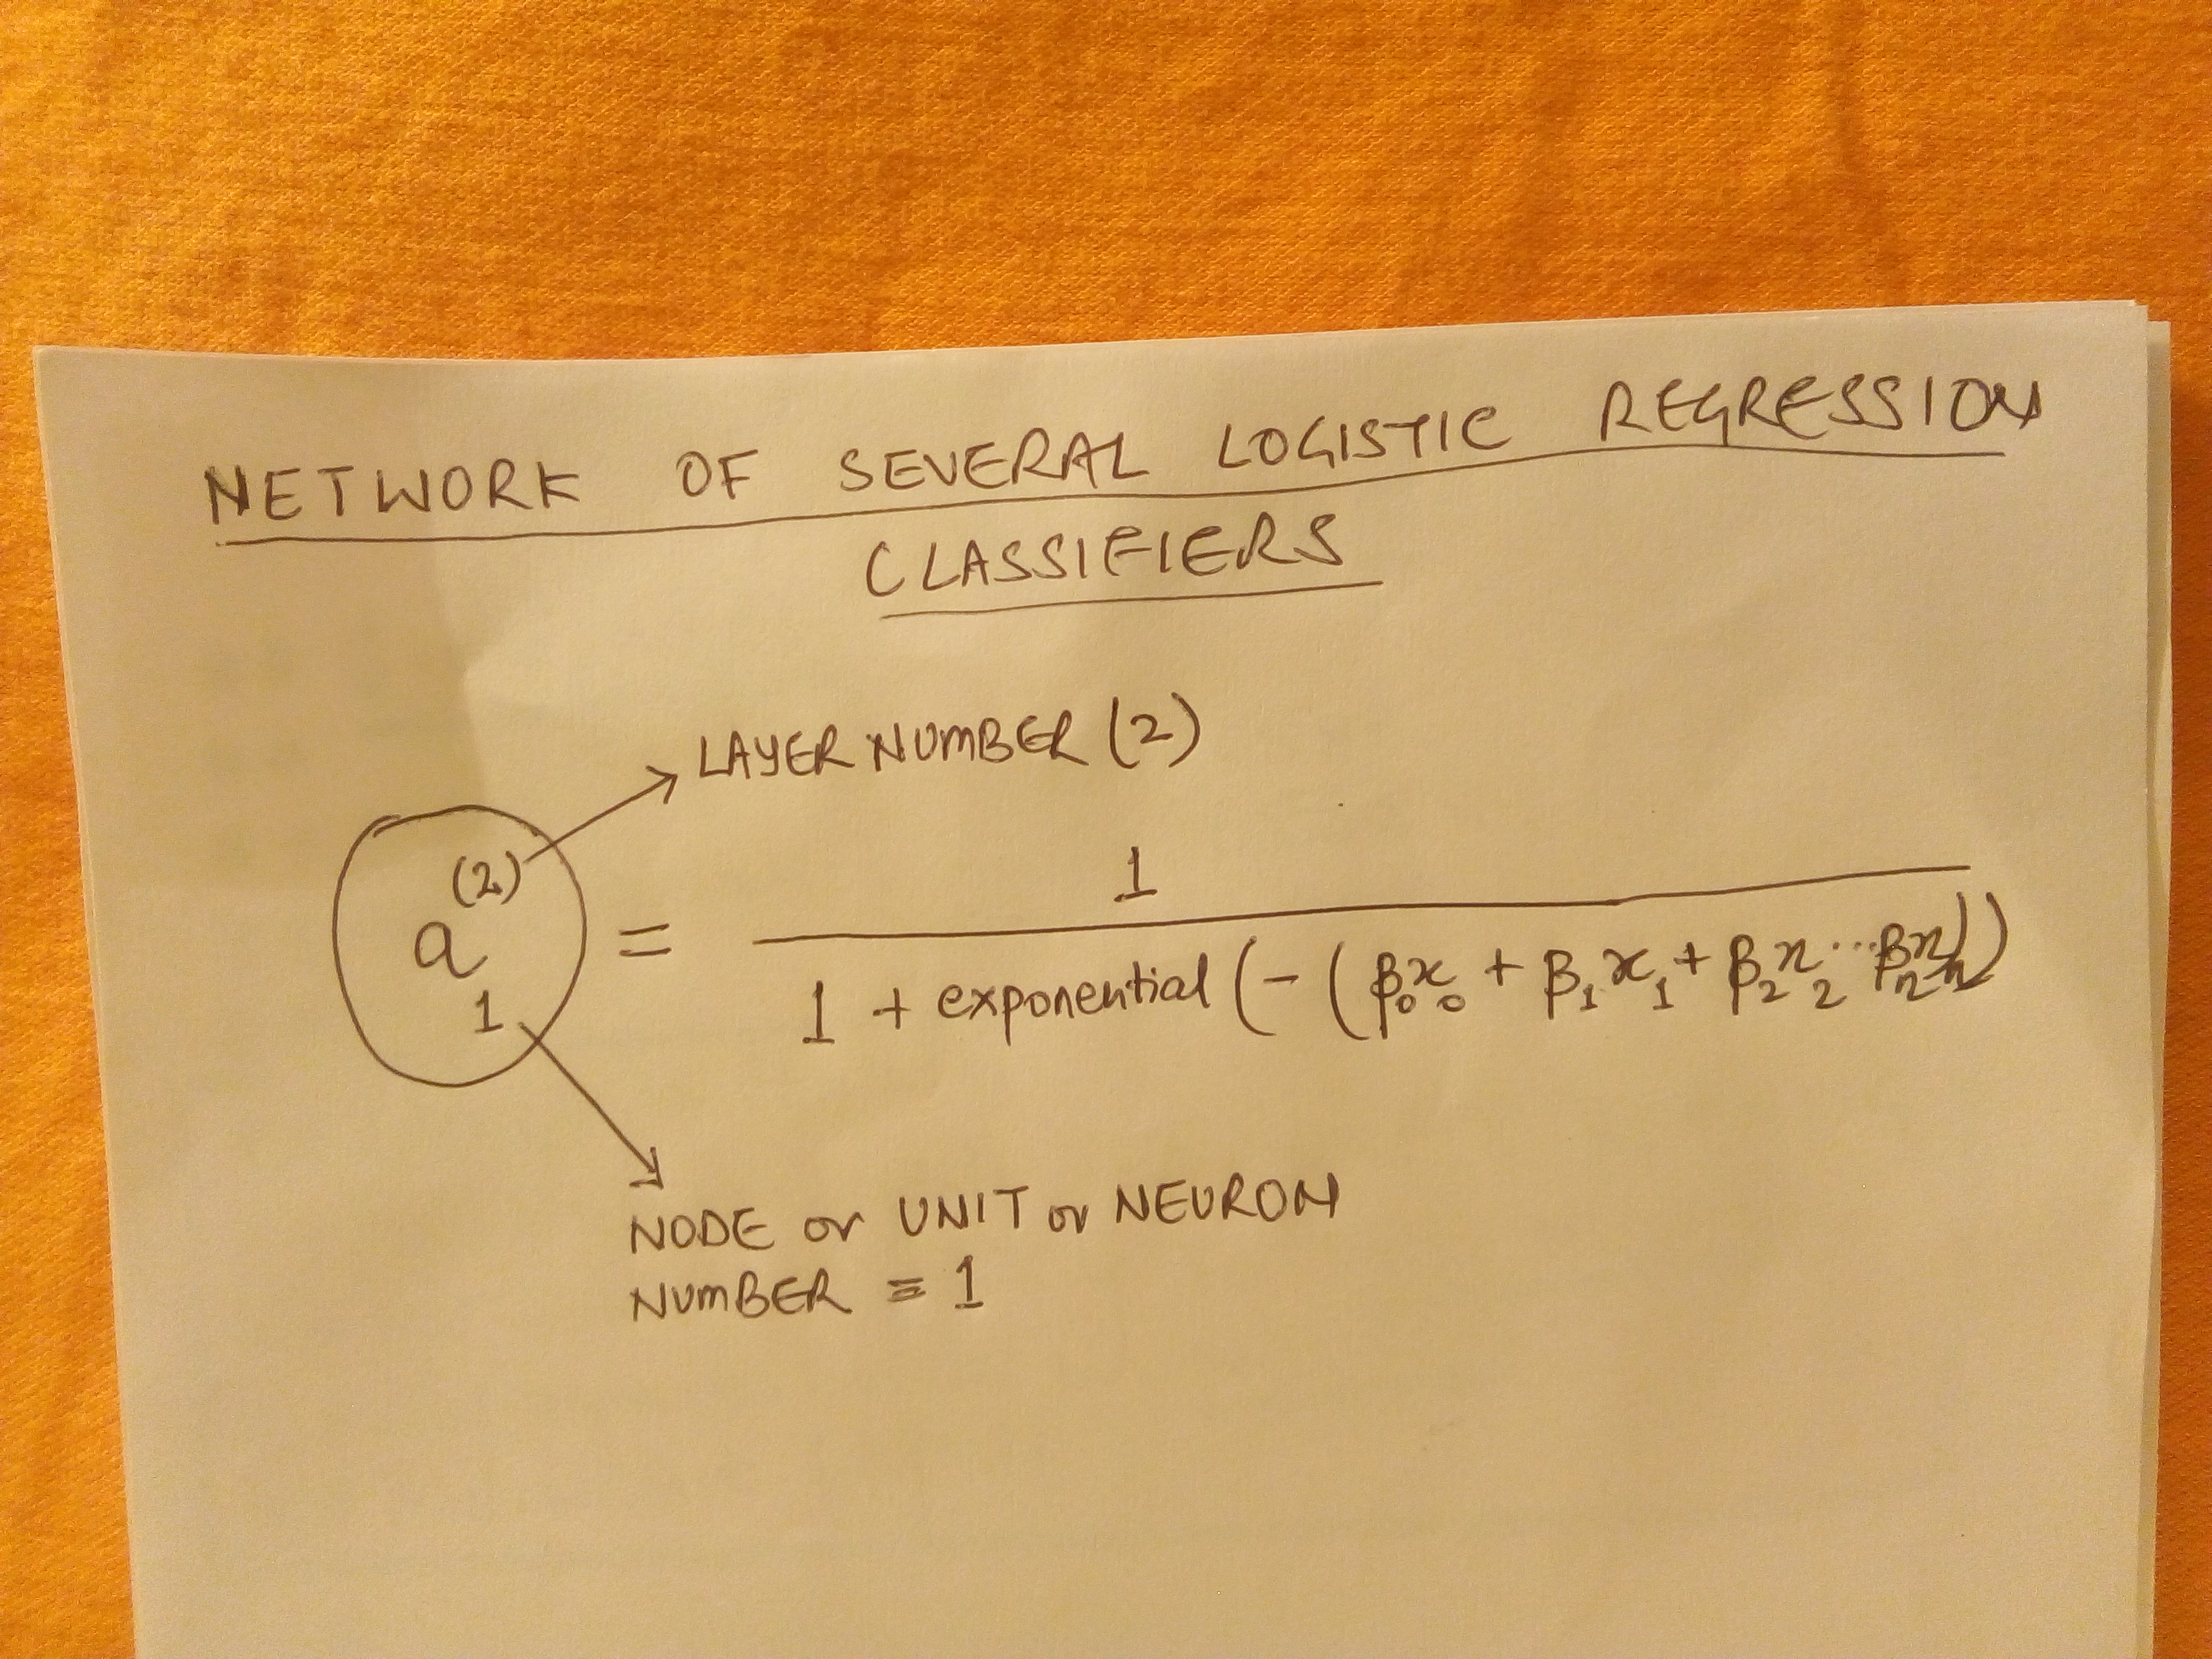 NETWORK OF SEVERAL LOGISTIC REGRESSION
CLASSIFIERS
LAYER NUMBER (2)
a₁⁽²⁾ = 1 / 1 + exponential (-(β₀x₀ + β₁x₁ + β₂x₂...βₙxₙ))
NODE or UNIT or NEURON
NUMBER = 1